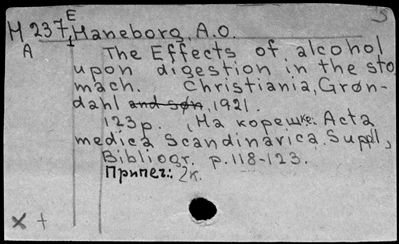 E
M 237, Haneborg, A.O.
A I
The Effects of alcohol
upon digestion in the sto
mach. Christiania, Grøn-
dahl and søn, 1921.
123 p. На корешке: Acta
medica Scandinavica. Suppl,
Bibliogr. p. 118-123.
Припеч.: 2к.
× +